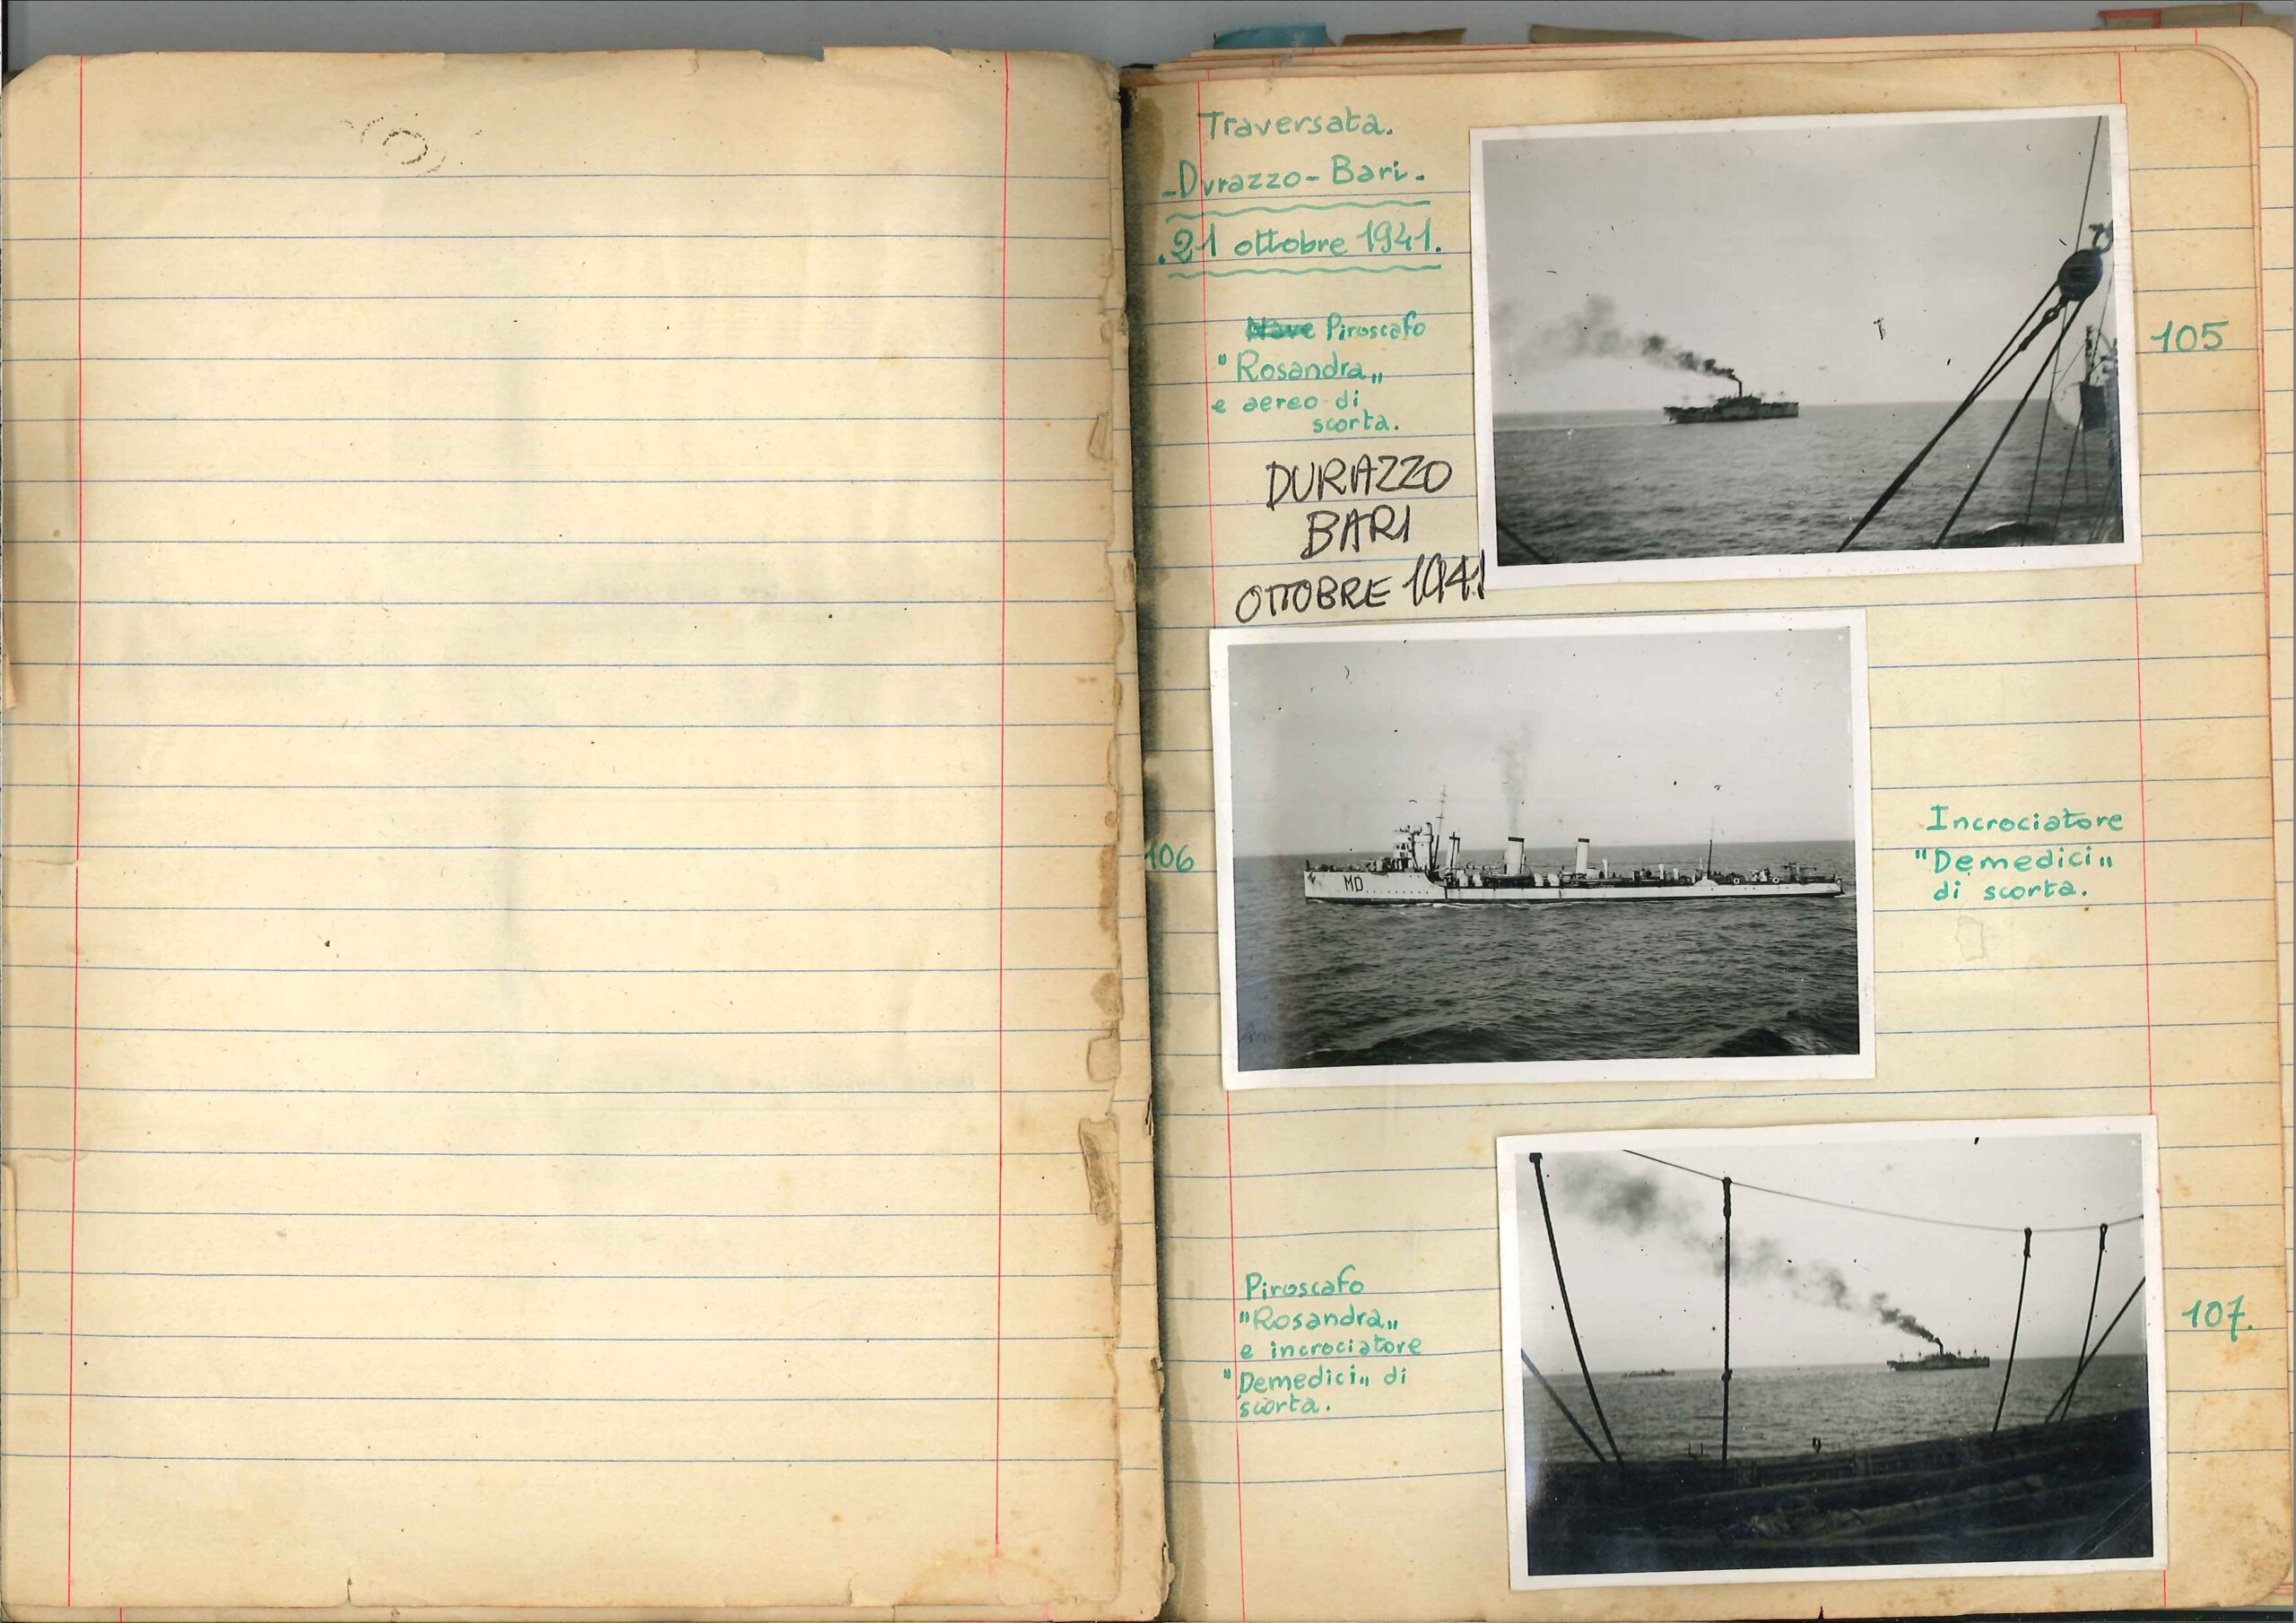 Traversata.
-Durazzo-Bari.
.21 ottobre 1941.
Nave Piroscafo
"Rosandra„
e aereo di
scorta.
105
DURAZZO
BARI
OTTOBRE 1941
MD
106
Incrociatore
"Demedici„
di scorta.
Piroscafo
"Rosandra„
e incrociatore
"Demedici„ di
scorta.
107.